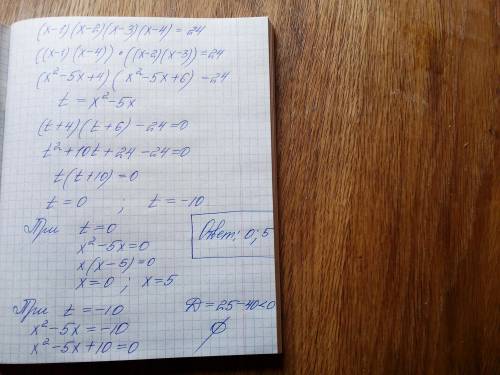 (x-1)(x-2)(x-3)(x-4)=24
((x-1)(x-4))•((x-2)(x-3))=24
(x²-5x+4)(x²-5x+6)-24
t=x²-5x
(t+4)(t+6)-24=0
t²+10t+24-24=0
t(t+10)=0
t=0 ; t=-10
При t=0
x²-5x=0
x(x-5)=0
x=0; x=5
Ответ: 0; 5
При t=-10
x²-5x=-10
x²-5x+10=0
Д=25-40<0
∅